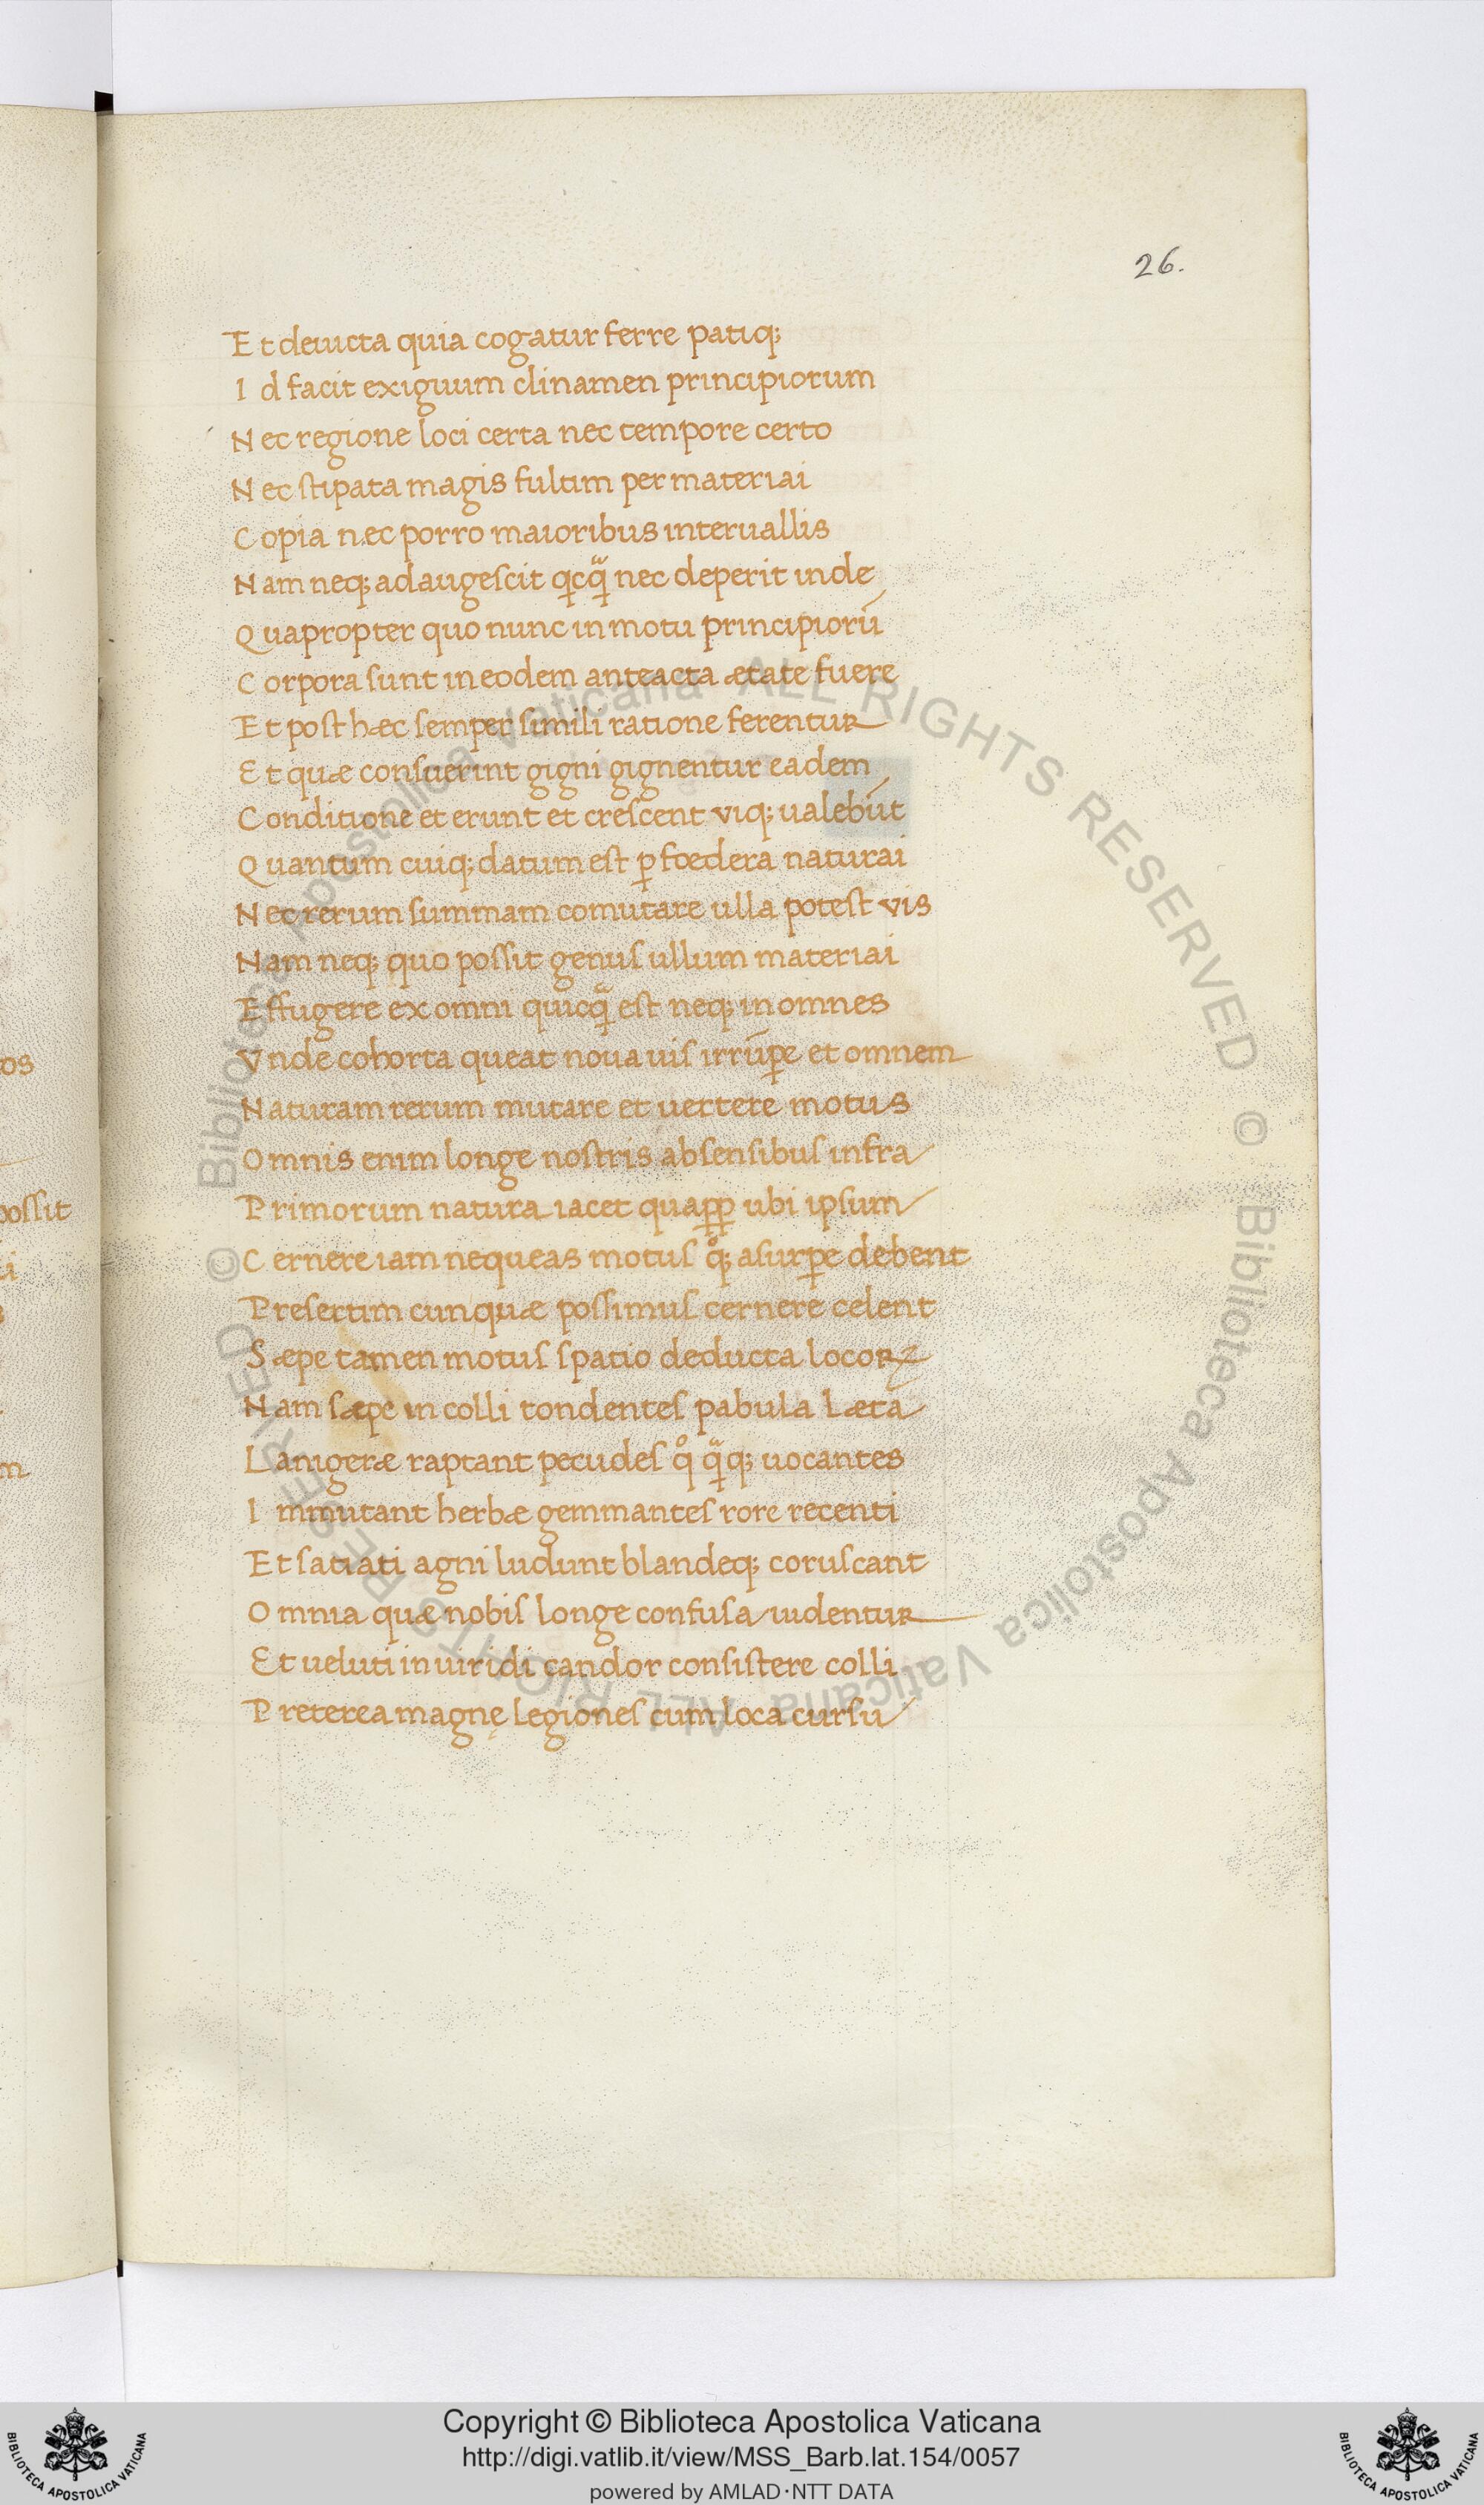 26.
Et deuicta quia cogatur ferre patiq;
Id facit exiguum clinamen principiorum
Nec regione loci certa nec tempore certo
Nec stipata magis fultim per materiai
Copia nec porro maioribus interuallis
Nam neq; adaugescit qicq̃ nec deperit inde
Quapropter quo nunc in motu principiorū
Corpora sunt in eodem anteacta ætate fuere
Et post hæc semper simili ratione ferentur
Et quæ consuerint gigni gignentur eadem
Conditione et erunt et crescent viq; ualebūt
Quantum cuiq; datum est ꝑ fœdera naturai
Nec rerum summam comutare ulla potest vis
Nam neq; quo possit genus ullum materiai
Effugere ex omni quicq̃ est neq; in omnes
Vnde cohorta queat noua uis irrūꝑe et omnem
Naturam rerum mutare et uertere motus
Omnis enim longe nostris ab sensibus infra
Primorum natura iacet quaꝓꝑ ubi ipsum
Cernere iam nequeas motus qͦq; asurꝑe debent
Presertim cun quæ possimus cernere celent
Sæpe tamen motus spatio deducta locoꝝ
Nam sæpe in colli tondentes pabula læta
Lanigeræ raptant pecudes qͦ q̃q; uocantes
Immutant herbæ gemmantes rore recenti
Et satiati agni ludunt blandeq; coruscant
Omnia quæ nobis longe confusa uidentur
Et ueluti in uiridi candor consistere colli
Preterea magnę legiones cum loca cursu
os
possit
i
s
m
© Biblioteca Apostolica Vaticana ALL RIGHTS RESERVED © Biblioteca Apostolica Vaticana ALL RIGHTS RESERVED
Copyright © Biblioteca Apostolica Vaticana
http://digi.vatlib.it/view/MSS_Barb.lat.154/0057
powered by AMLAD·NTT DATA
BIBLIOTECA APOSTOLICA VATICANA
BIBLIOTECA APOSTOLICA VATICANA